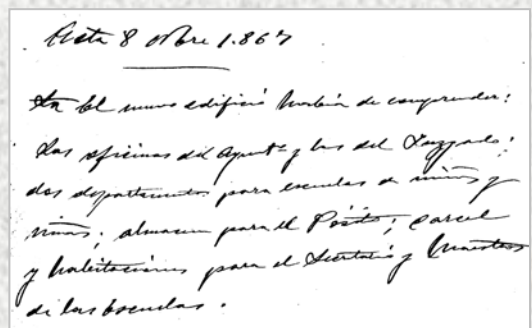 Acta 8 obre 1.867
El nuevo edificio habia de comprender:
Las oficinas del Ayuntº y las del Juzgado;
dos departamentos para escuelas de niños y
niñas; almacen para el Pósito; carcel
y habitaciones para el Secretario y Maestros
de las Escuelas.